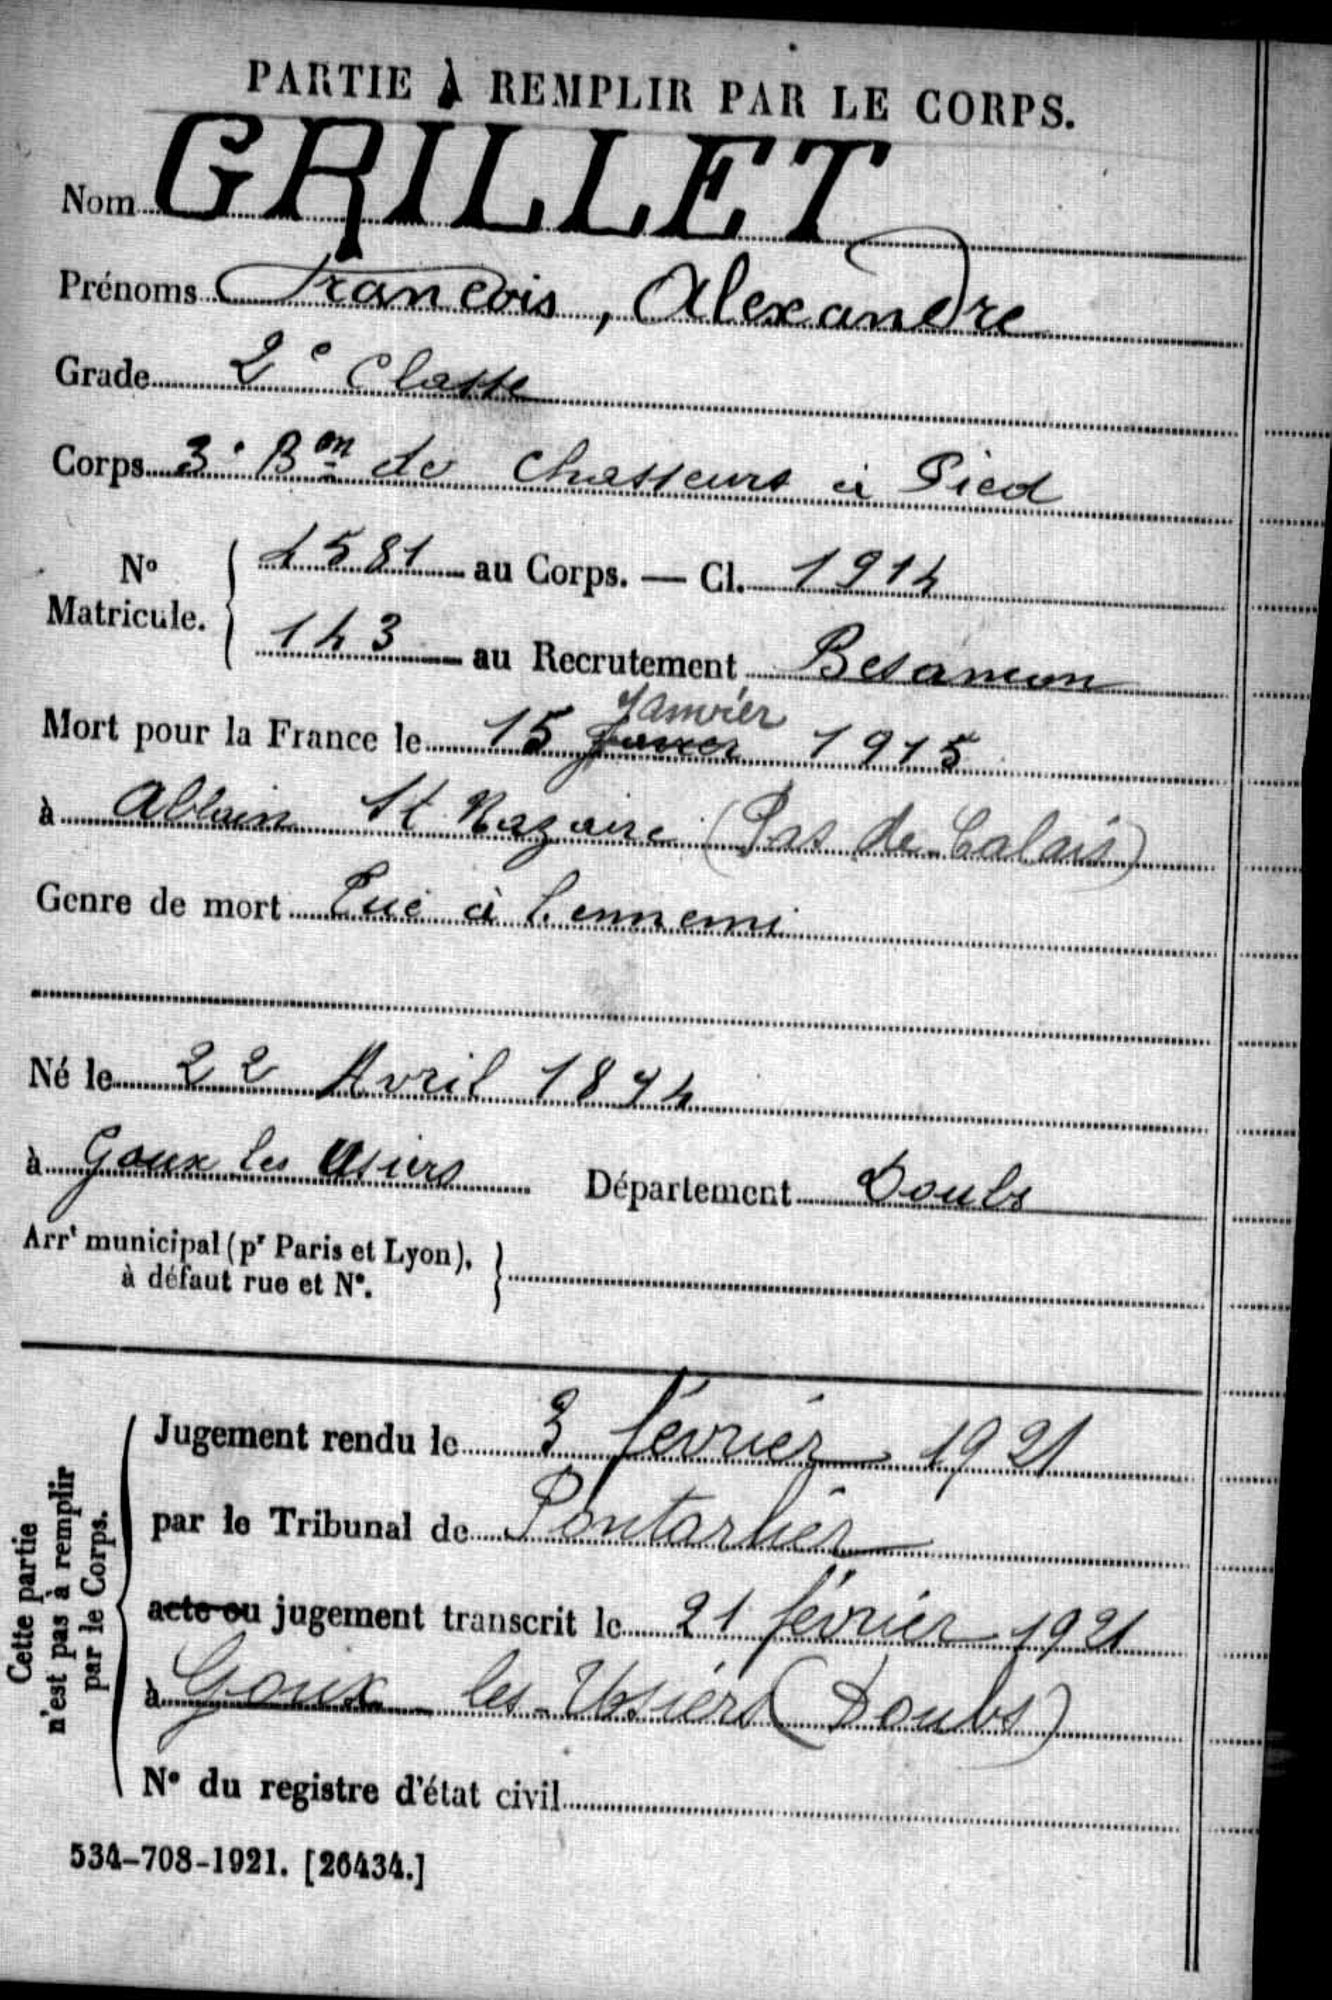 PARTIE À REMPLIR PAR LE CORPS.
Nom GRILLET
Prénoms Francois, Alexandre
Grade 2e Classe
Corps 3e Bon de Chasseurs à Pied
No Matricule. { 4581 au Corps. — Cl. 1914
143 au Recrutement Besancon
Janvier
Mort pour la France le 15 Janvier 1915
à Ablain St Nazaire (Pas de Calais)
Genre de mort Tué à l'ennemi
Né le 22 Avril 1894
à Goux les Usiers Département Doubs
Arrt municipal (pr Paris et Lyon), à défaut rue et No.
Cette partie n'est pas à remplir par le Corps.
Jugement rendu le 3 février 1921
par le Tribunal de Pontarlier
acte ou jugement transcrit le 21 février 1921
à Goux-les-Usiers (Doubs)
No du registre d'état civil
534-708-1921. [26434.]